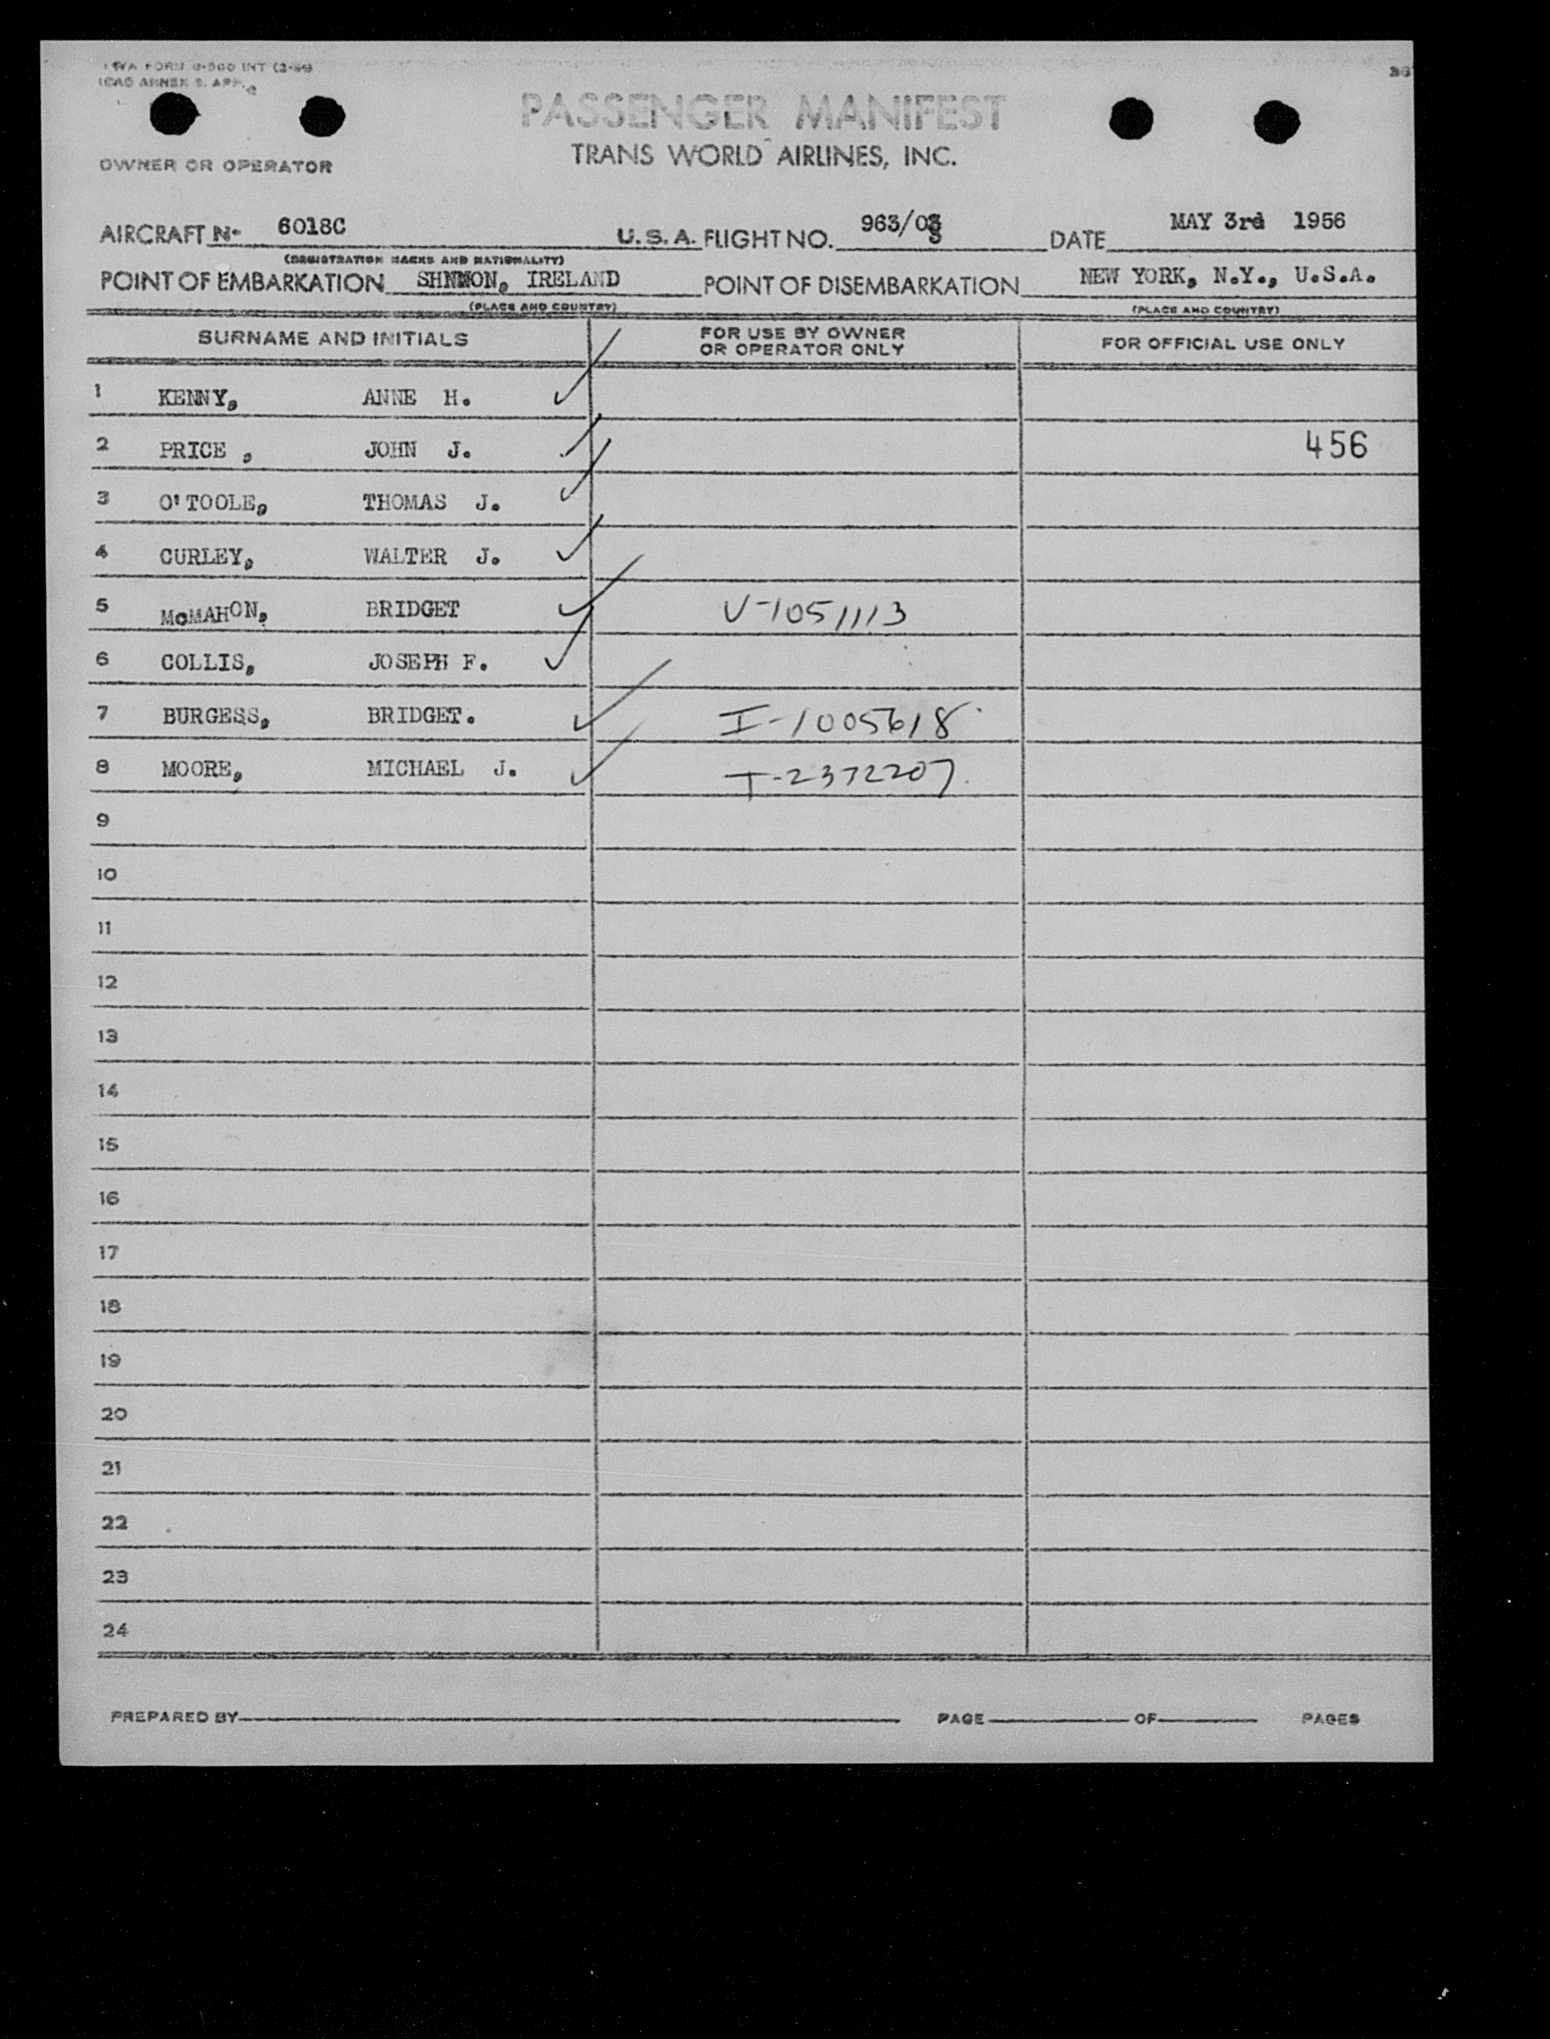 TWA FORM INT
ICAO ANNEX 9. APP.
PASSENGER MANIFEST
TRANS WORLD AIRLINES, INC.
OWNER OR OPERATOR
AIRCRAFT No 6018C U.S.A. FLIGHT NO. 963/03 DATE MAY 3rd 1956
(REGISTRATION MARKS AND NATIONALITY)
POINT OF EMBARKATION SHNNON, IRELAND POINT OF DISEMBARKATION NEW YORK, N.Y., U.S.A.
(PLACE AND COUNTRY) (PLACE AND COUNTRY)
SURNAME AND INITIALS FOR USE BY OWNER OR OPERATOR ONLY FOR OFFICIAL USE ONLY
1 KENNY, ANNE H.
2 PRICE , JOHN J. 456
3 O'TOOLE, THOMAS J.
4 CURLEY, WALTER J.
5 McMAHON, BRIDGET V-1051113
6 COLLIS, JOSEPH F.
7 BURGESS, BRIDGET. I-1005618
8 MOORE, MICHAEL J. T-2372207.
9
10
11
12
13
14
15
16
17
18
19
20
21
22
23
24
PREPARED BY PAGE OF PAGES